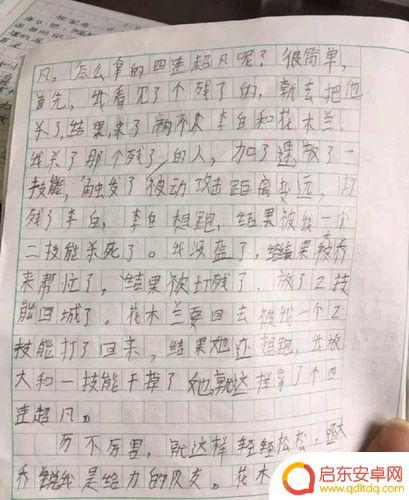 凡，怎么拿的四连超凡呢？很简单，
首先，我看见了个残了的，就去把他
杀了，结果，来了两个人李白和花木兰，
我杀了那个残了的人，加了速放了一
技能，触发了被动攻击距离变远，打
残了李白，李白想跑，结果被我一个
二技能杀死了。我没蓝了，结果
来帮忙了，结果被打残了，放了2技
能回城了。花木兰要回去被我一个2
技能打了回来，结果她还想跑，我放
大和一技能干掉了她，就这样拿了个四
连超凡。
厉不厉害，就这样轻轻松松，
是给力的队友。花木
启东安卓网
www.qdltdq.com